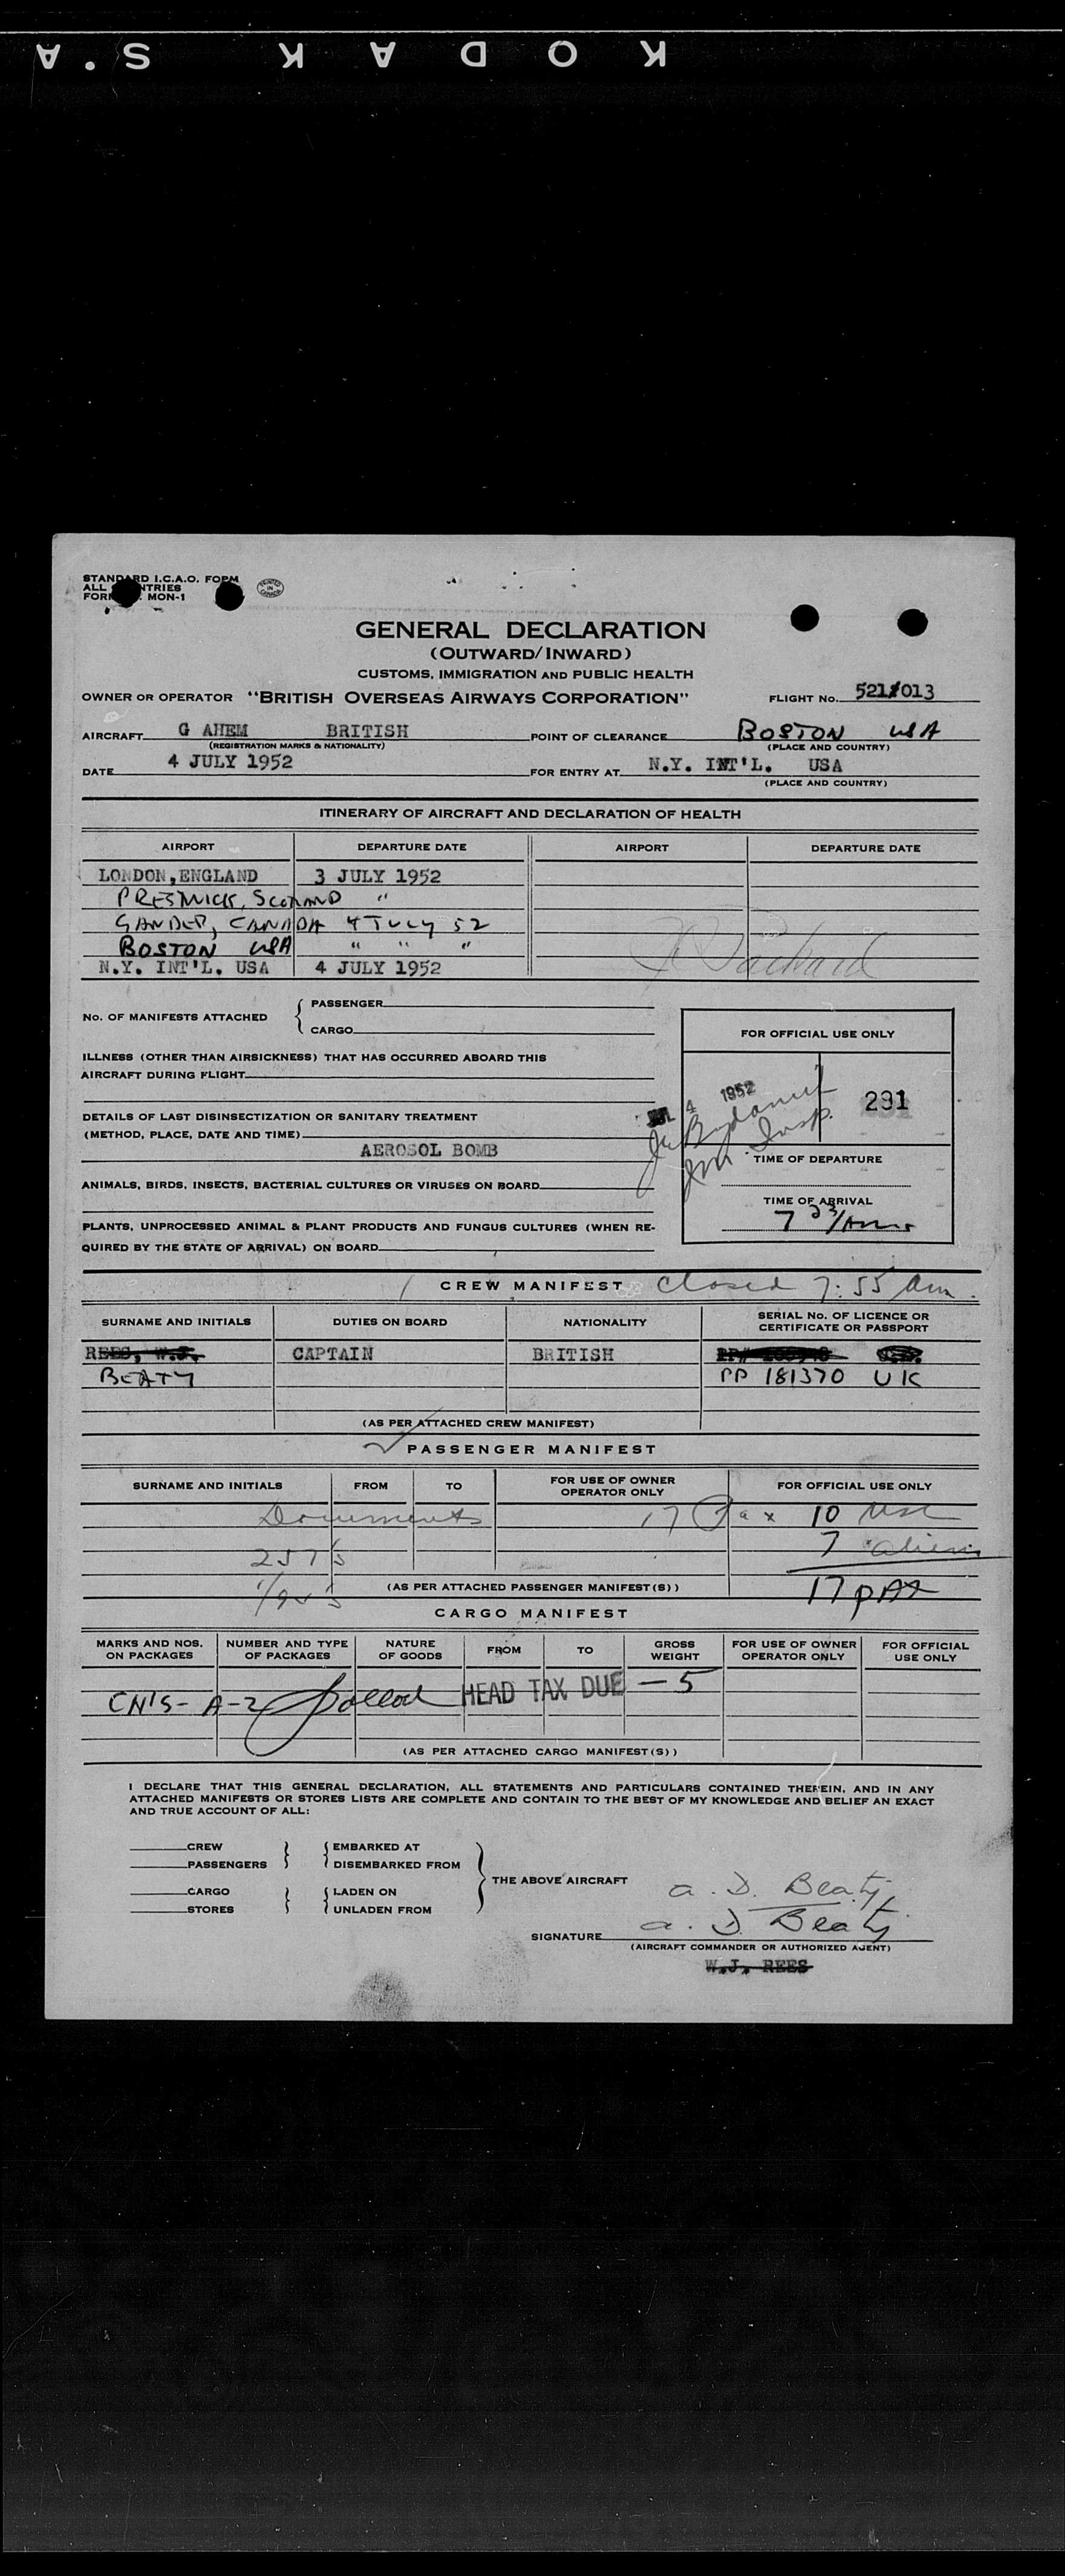 KODAK S.A
STANDARD I.C.A.O. FORM
ALL COUNTRIES
FORM MON-1
PRINTED IN CANADA
GENERAL DECLARATION
(OUTWARD/INWARD)
CUSTOMS, IMMIGRATION AND PUBLIC HEALTH
OWNER OR OPERATOR "BRITISH OVERSEAS AIRWAYS CORPORATION" FLIGHT No. 521/013
AIRCRAFT G AHEM BRITISH POINT OF CLEARANCE BOSTON USA
(REGISTRATION MARKS & NATIONALITY) (PLACE AND COUNTRY)
DATE 4 JULY 1952 FOR ENTRY AT N.Y. INT'L. USA
(PLACE AND COUNTRY)
ITINERARY OF AIRCRAFT AND DECLARATION OF HEALTH
AIRPORT DEPARTURE DATE AIRPORT DEPARTURE DATE
LONDON, ENGLAND 3 JULY 1952
PRESTWICK, SCOTLAND "
GANDER, CANADA 4 JULY 52
BOSTON USA " " "
N.Y. INT'L. USA 4 JULY 1952
No. OF MANIFESTS ATTACHED
PASSENGER
CARGO
FOR OFFICIAL USE ONLY
ILLNESS (OTHER THAN AIRSICKNESS) THAT HAS OCCURRED ABOARD THIS
AIRCRAFT DURING FLIGHT
JUL 4 1952
291
DETAILS OF LAST DISINSECTIZATION OR SANITARY TREATMENT
(METHOD, PLACE, DATE AND TIME)
AEROSOL BOMB
Im. Insp.
TIME OF DEPARTURE
ANIMALS, BIRDS, INSECTS, BACTERIAL CULTURES OR VIRUSES ON BOARD
TIME OF ARRIVAL
PLANTS, UNPROCESSED ANIMAL & PLANT PRODUCTS AND FUNGUS CULTURES (WHEN RE-
QUIRED BY THE STATE OF ARRIVAL) ON BOARD
CREW MANIFEST closed 7:55 am.
SURNAME AND INITIALS DUTIES ON BOARD NATIONALITY SERIAL No. OF LICENCE OR
CERTIFICATE OR PASSPORT
REES, W.J. CAPTAIN BRITISH
BEATY PP 181370 UK
(AS PER ATTACHED CREW MANIFEST)
PASSENGER MANIFEST
SURNAME AND INITIALS FROM TO FOR USE OF OWNER
OPERATOR ONLY FOR OFFICIAL USE ONLY
Documents 17 Pax 10 USC
257's 7 aliens
(AS PER ATTACHED PASSENGER MANIFEST(S)) 17 PAX
CARGO MANIFEST
MARKS AND NOS.
ON PACKAGES NUMBER AND TYPE
OF PACKAGES NATURE
OF GOODS FROM TO GROSS
WEIGHT FOR USE OF OWNER
OPERATOR ONLY FOR OFFICIAL
USE ONLY
CN'S- A-2 HEAD TAX DUE - 5
(AS PER ATTACHED CARGO MANIFEST(S))
I DECLARE THAT THIS GENERAL DECLARATION, ALL STATEMENTS AND PARTICULARS CONTAINED THEREIN, AND IN ANY
ATTACHED MANIFESTS OR STORES LISTS ARE COMPLETE AND CONTAIN TO THE BEST OF MY KNOWLEDGE AND BELIEF AN EXACT
AND TRUE ACCOUNT OF ALL:
CREW EMBARKED AT
PASSENGERS DISEMBARKED FROM
THE ABOVE AIRCRAFT
CARGO LADEN ON
STORES UNLADEN FROM
a. D. Beaty
SIGNATURE a. D Beaty
(AIRCRAFT COMMANDER OR AUTHORIZED AGENT)
W.J. REES